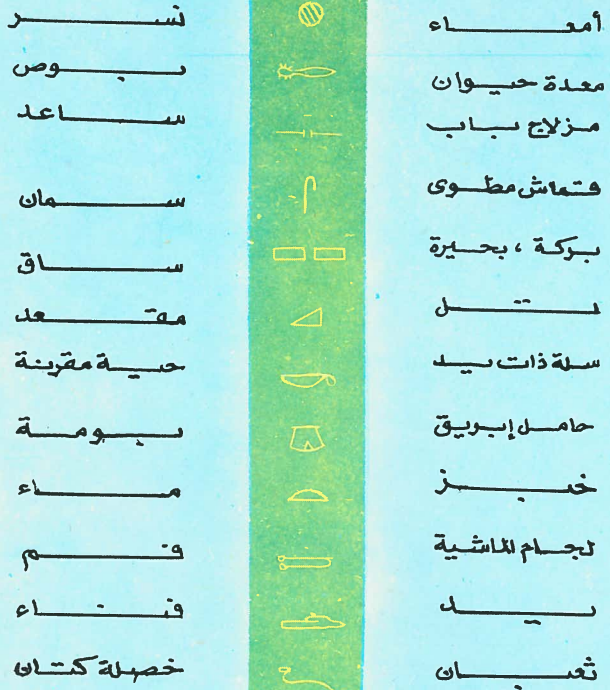 أمعاء
معدة حيوان
مزلاج باب
قماش مطوى
بركة ، بحيرة
تل
سلة ذات يد
حامل إبريق
خبز
لجام الماشية
يد
ثعبان
نسر
بوص
ساعد
سمان
ساق
مقعد
حية مقرنة
بومة
ماء
فم
فناء
خصلة كتان